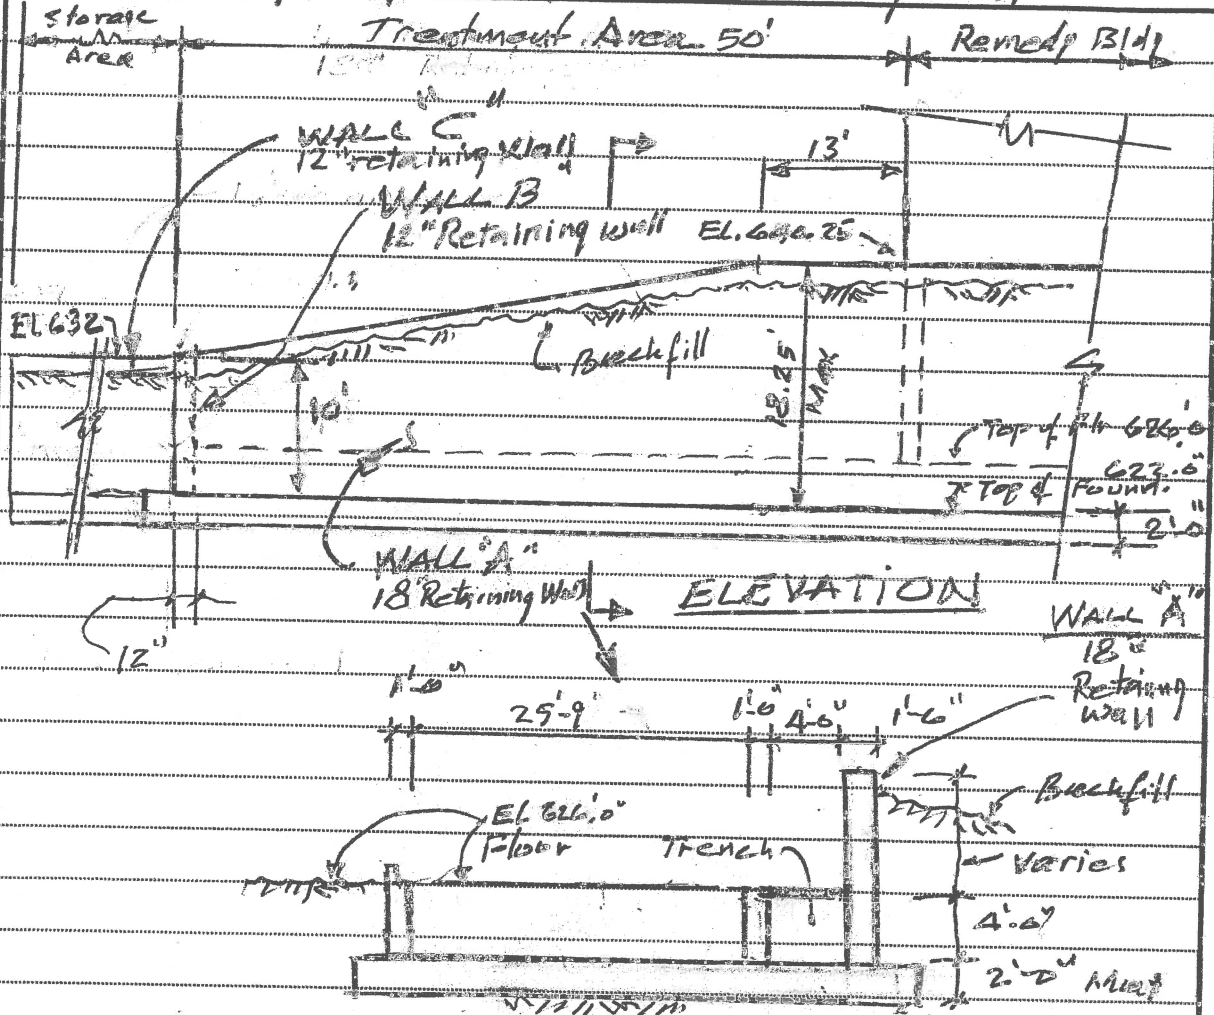 Storage
Area
Treatment Area 50'
Remedy Bldg
WALL C
12" retaining Wall
13'
WALL B
12" Retaining wall
EL. 640.25
EL 632
Backfill
10'
18.25'
Max
Top of 626'.0
622'.0"
Top of Found.
2'.0"
WALL "A"
18" Retaining Wall
ELEVATION
12"
WALL "A"
18"
Retaining
wall
1'-0"
25'-9"
1'-0"
4'-0"
1'-6"
Backfill
El 626'.0"
Floor
Trench
Varies
4'.0"
2'-0" Mat